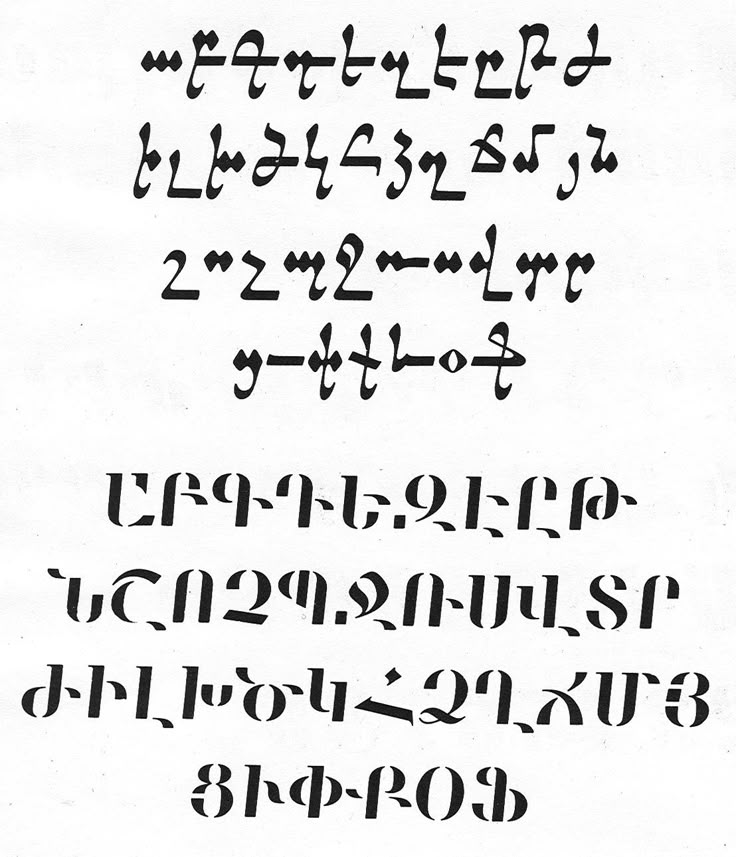 աբգդեզէըթժ
իլխծկհձղճմյն
շոչպջռսվտր
ցւփքևօֆ
ԱԲԳԴԵԶԷԸԹ
ՆՇՈՉՊՋՌՍՎՏՐ
ԺԻԼԽԾԿՀՁՂՃՄՅ
ՑՒՓՔՕՖ